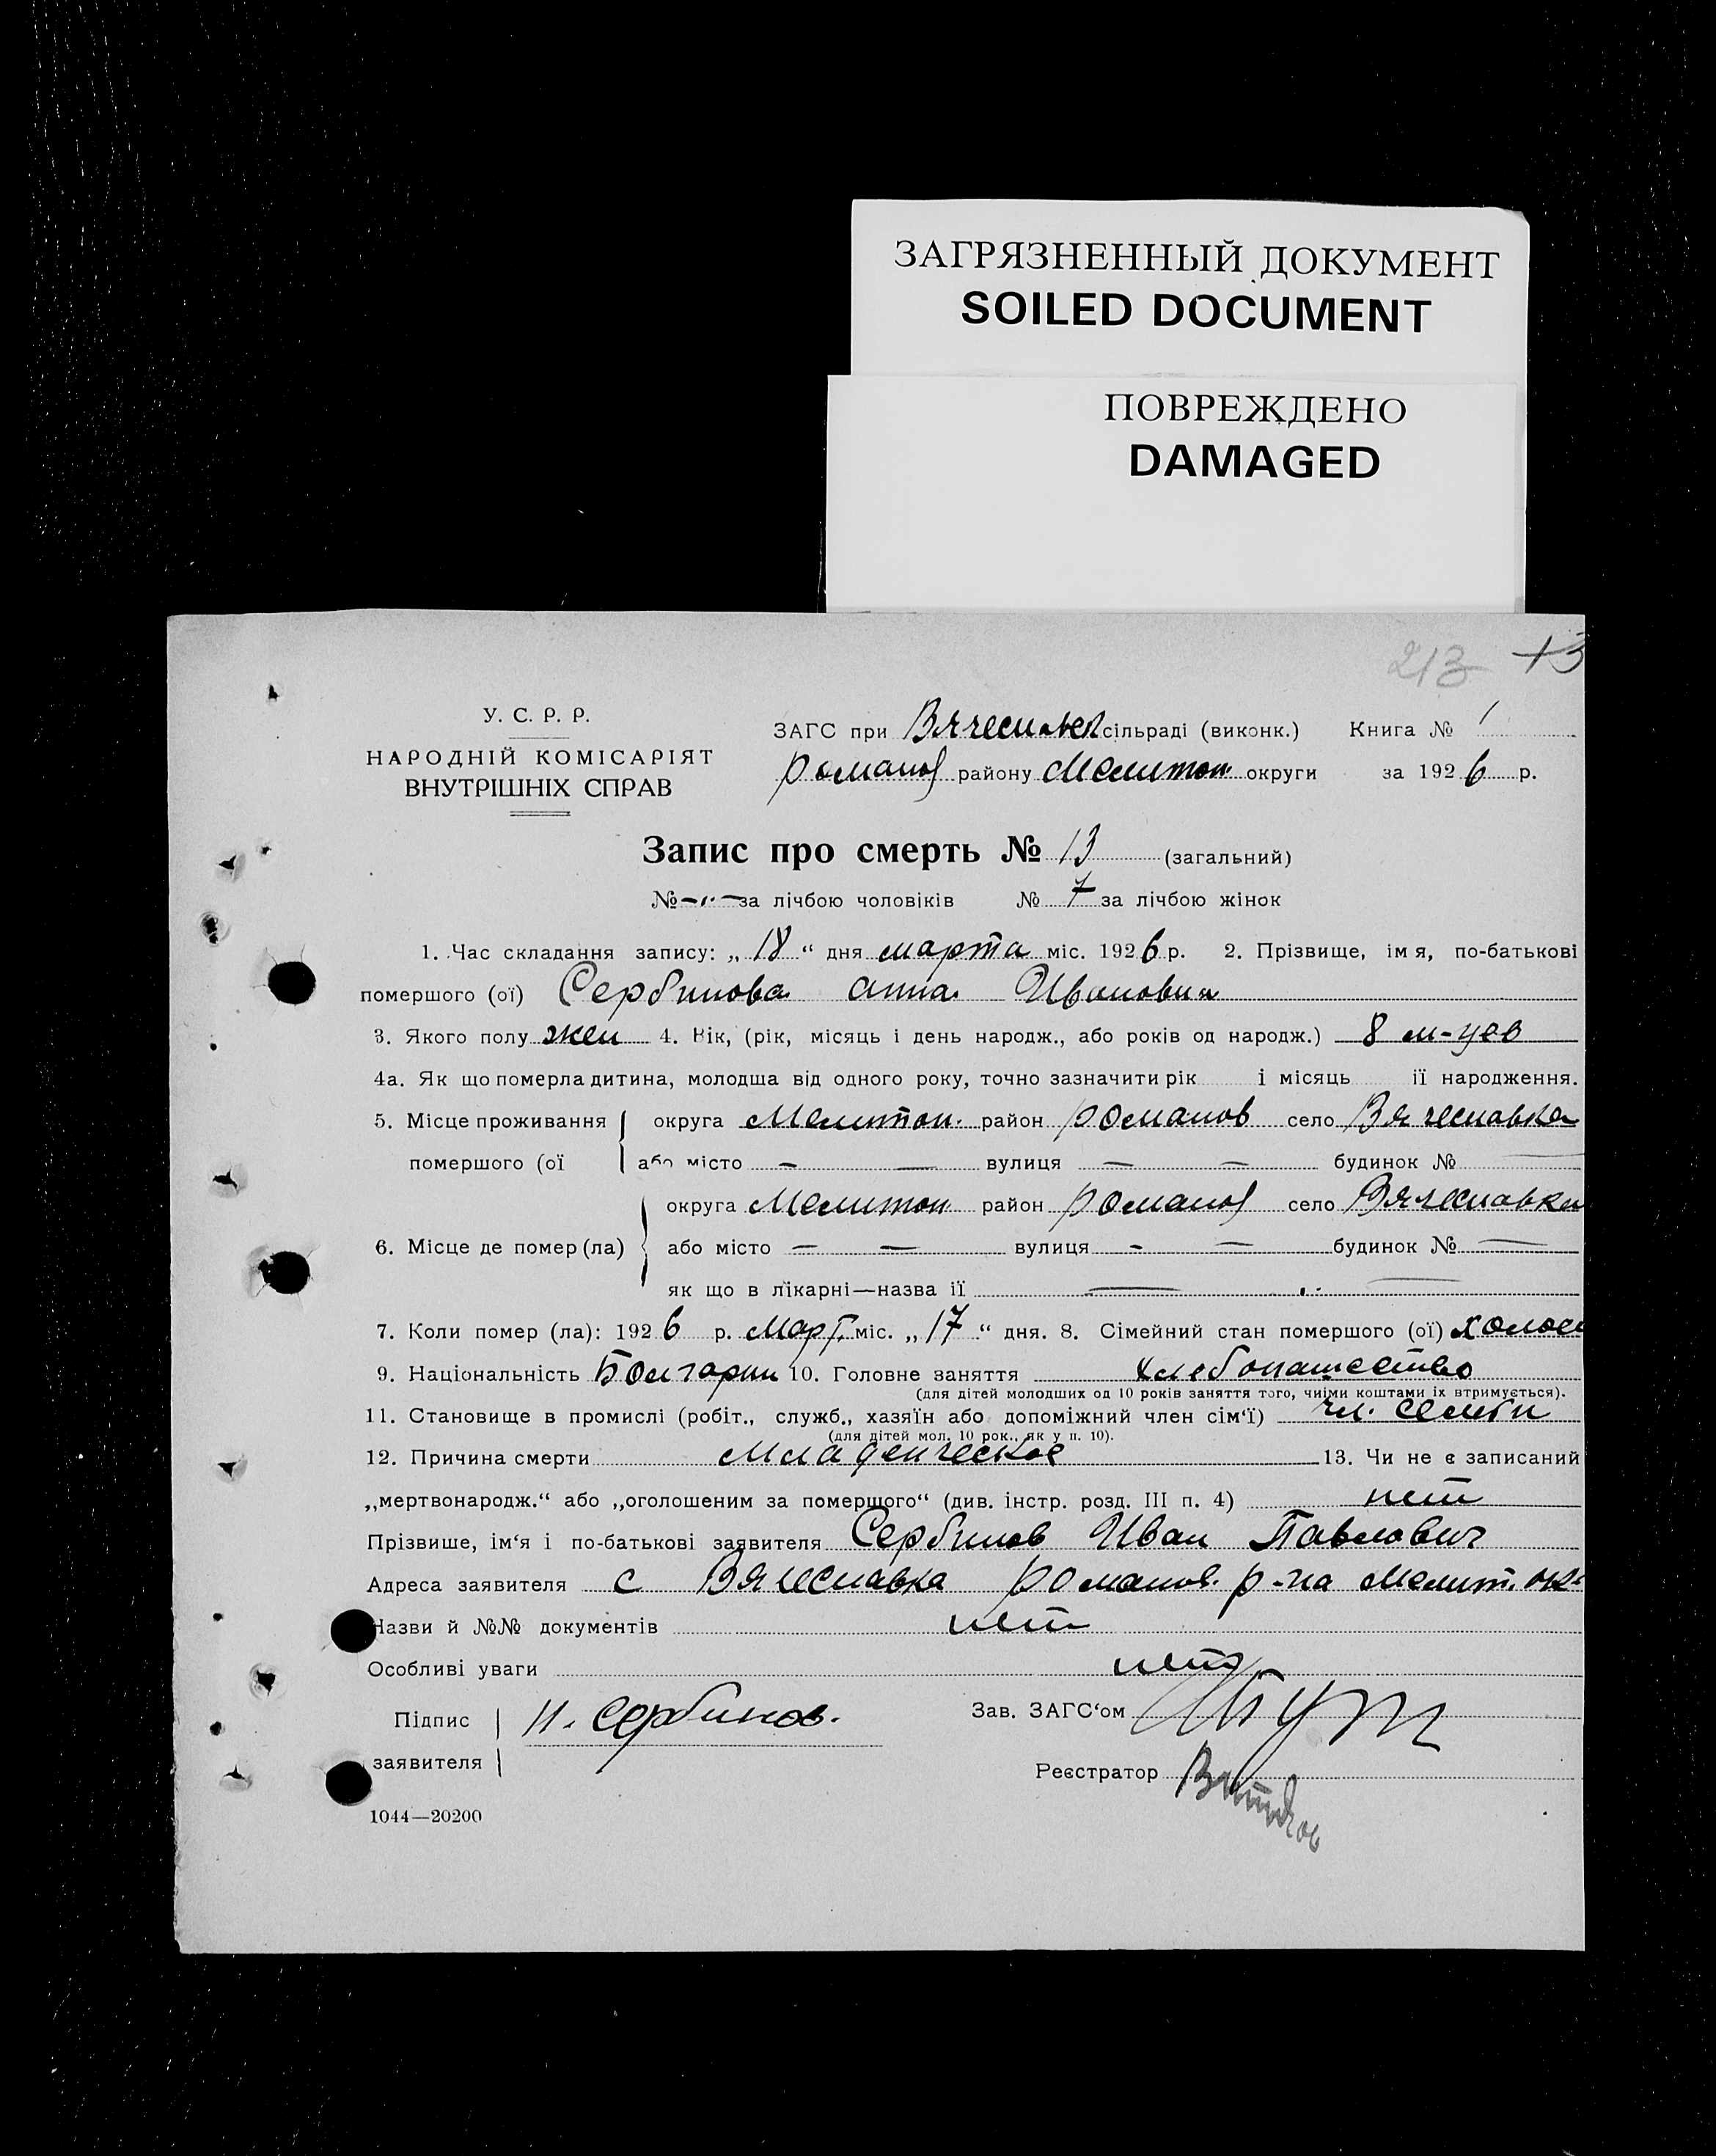 ЗАГРЯЗНЕННЫЙ ДОКУМЕНТ
SOILED DOCUMENT
ПОВРЕЖДЕНО
DAMAGED
213 13
У. С. Р. Р.
НАРОДНІЙ КОМІСАРІЯТ
ВНУТРІШНІХ СПРАВ
ЗАГС при Вячеславс сільраді (виконк.) Книга № 1
Романов району Мелитоп. округи за 1926 р.
Запис про смерть № 13 (загальний)
№ — за лічбою чоловіків № 7 за лічбою жінок
1. Час складання запису: „18“ дня марта міс. 1926 р. 2. Прізвище, імя, по-батькові
помершого (ої) Сербинова Анна Ивановна
3. Якого полу жен 4. Вік, (рік, місяць і день народж., або років од народж.) 8 м-цев
4а. Як що померла дитина, молодша від одного року, точно зазначити рік і місяць її народження.
5. Місце проживання округа Мелитоп. район Романов село Вячеславка
помершого (ої або місто — — вулиця — — будинок № —
округа Мелитоп район Романов село Вячеславка
6. Місце де помер (ла) або місто — — вулиця - — будинок № —
як що в лікарні—назва її — —
7. Коли помер (ла): 1926 р. Март міс. „17“ дня. 8. Сімейний стан помершого (ої) холос
9. Національність Болгарин 10. Головне заняття хлебопашество
(для дітей молодших од 10 років заняття того, чиїми коштами їх втримується).
11. Становище в промислі (робіт., служб., хазяїн або допоміжний член сім‘ї) чл. семьи
(для дітей мол. 10 рок., як у п. 10).
12. Причина смерти младенческое 13. Чи не є записаний
„мертвонародж.“ або „оголошеним за помершого“ (див. інстр. розд. III п. 4) нет
Прізвише, ім‘я і по-батькові заявителя Сербинов Иван Павлович
Адреса заявителя с Вячеславка Романов. р-на Мелит. ок-
Назви й №№ документів нет
Особливі уваги нет
Підпис заявителя И. Сербинов.
Зав. ЗАГС‘ом
Реєстратор
1044—20200